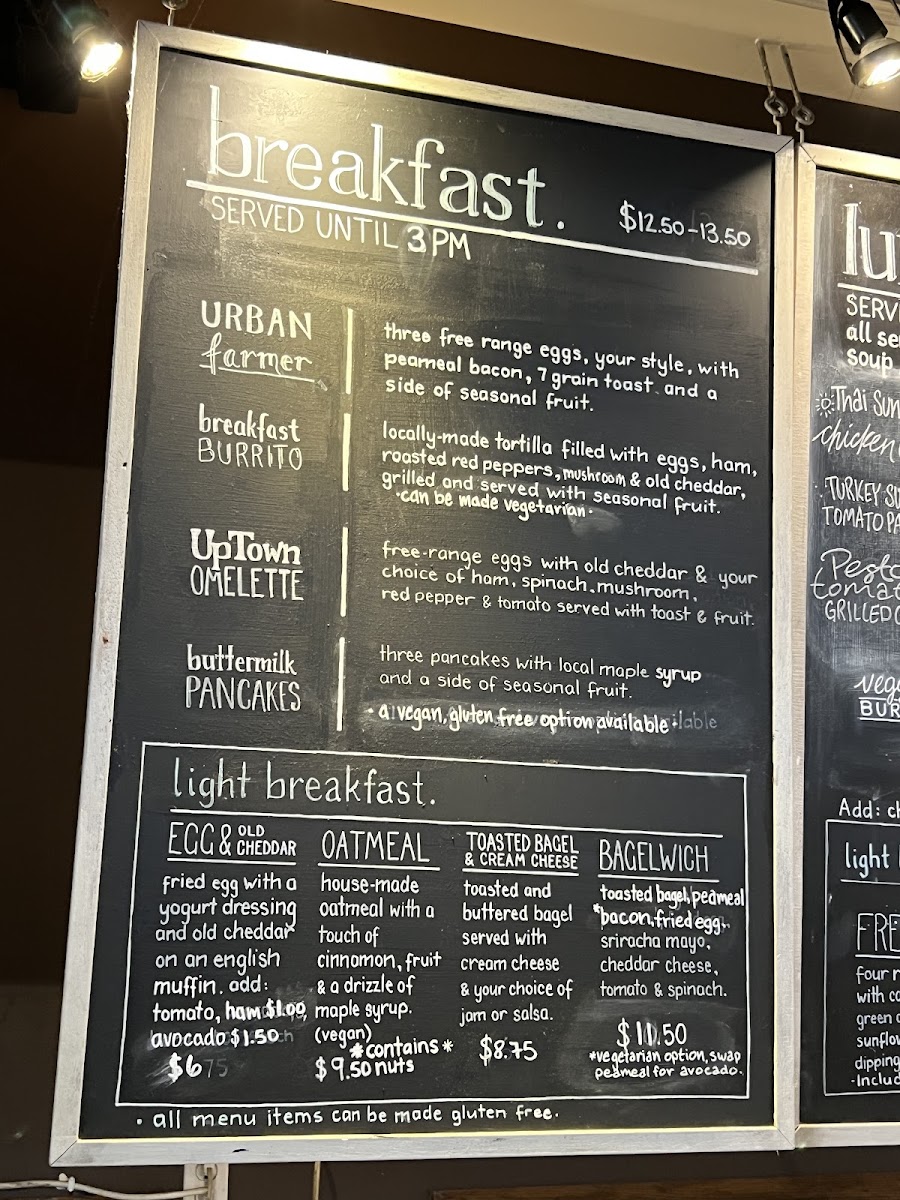 breakfast.
SERVED UNTIL 3PM
$12.50-13.50
URBAN
farmer
three free range eggs, your style, with
peameal bacon, 7 grain toast and a
side of seasonal fruit.
breakfast
BURRITO
locally-made tortilla filled with eggs, ham,
roasted red peppers, mushroom & old cheddar,
grilled and served with seasonal fruit.
•can be made vegetarian•
UpTown
OMELETTE
free-range eggs with old cheddar & your
choice of ham, spinach, mushroom,
red pepper & tomato served with toast & fruit.
buttermilk
PANCAKES
three pancakes with local maple syrup
and a side of seasonal fruit.
• a vegan, gluten free option available •
light breakfast.
EGG & OLD
CHEDDAR
fried egg with a
yogurt dressing
and old cheddar
on an english
muffin. add:
tomato, ham $1.00
avocado $1.50
$6
OATMEAL
house-made
oatmeal with a
touch of
cinnamon, fruit
& a drizzle of
maple syrup.
(vegan)
*contains*
$9.50 nuts
TOASTED BAGEL
& CREAM CHEESE
toasted and
buttered bagel
served with
cream cheese
& your choice of
jam or salsa.
$8.75
BAGELWICH
toasted bagel, peameal
*bacon, fried egg,
sriracha mayo,
cheddar cheese,
tomato & spinach.
$10.50
*vegetarian option, swap
peameal for avocado.
• all menu items can be made gluten free.
lu
SERV
all se
soup
Thai Sun
chicken
TURKEY SU
TOMATO PA
Pesto
tomat
GRILLED C
veg
BUR
Add: ch
light
FRE
four
with co
green
sunflow
dipping
-Includ